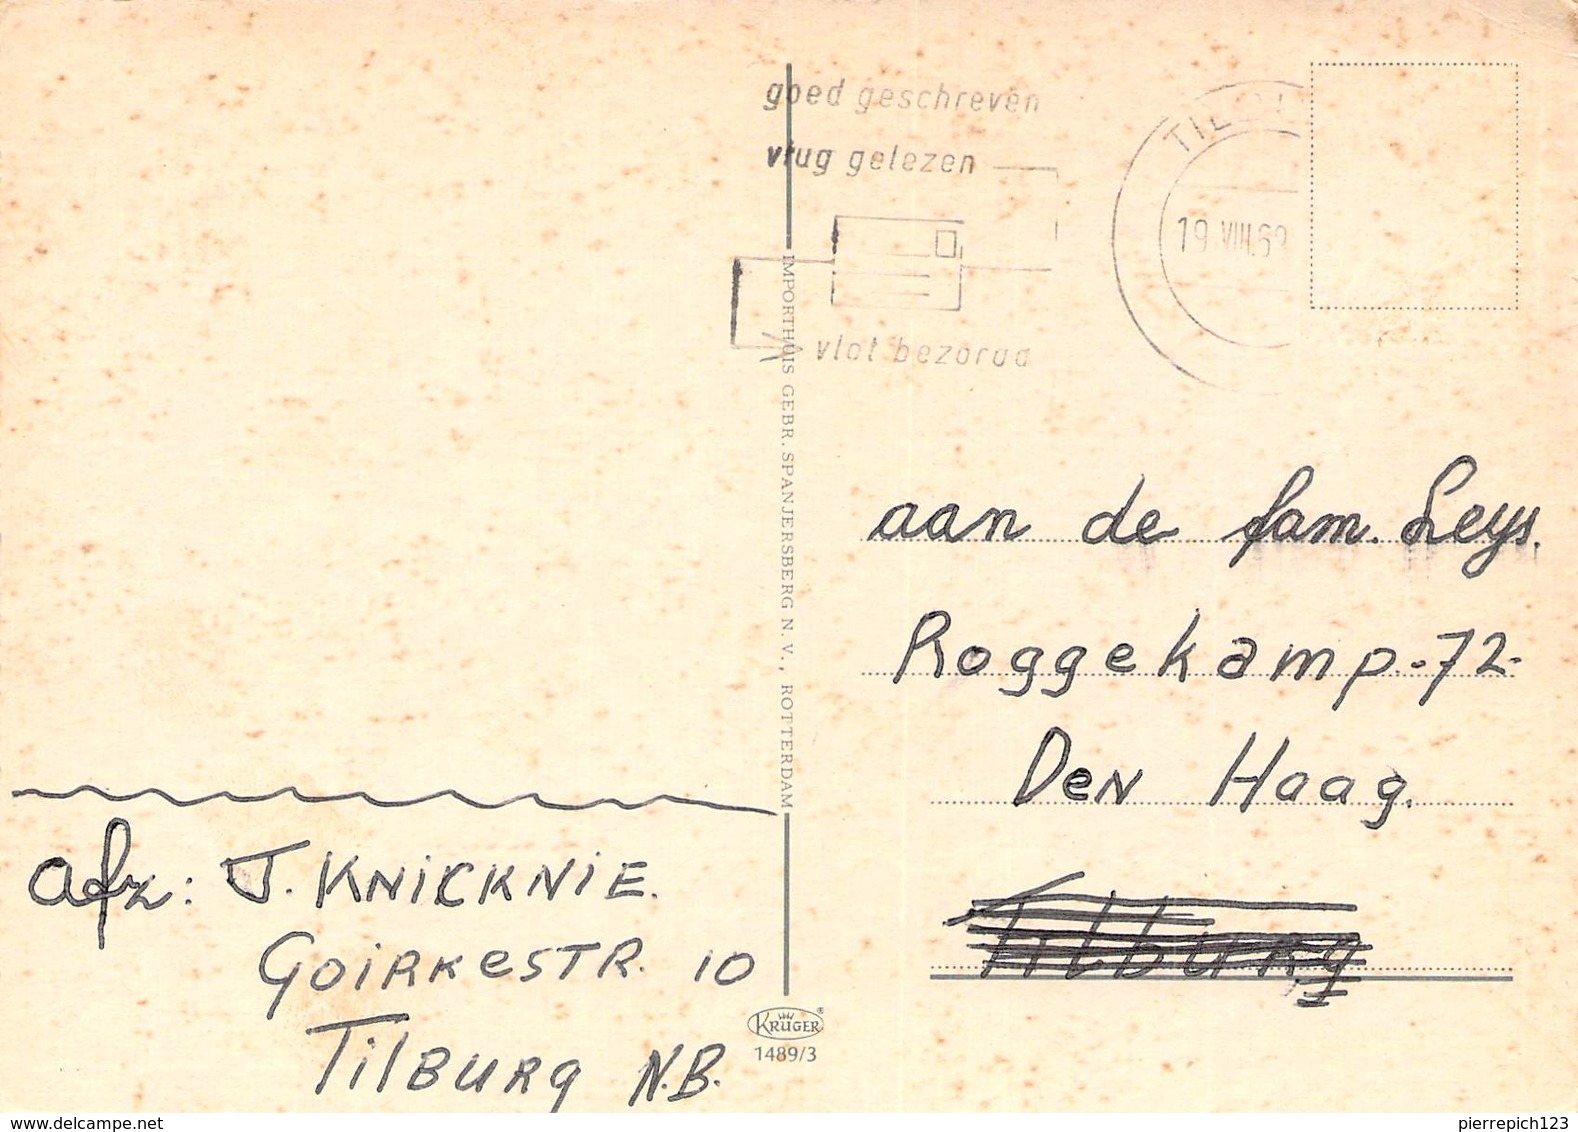 goed geschreven
vlug gelezen
vlot bezorgd
19 VIII.6
IMPORTHUIS GEBR. SPANJERSBERG N.V., ROTTERDAM
aan de fam. Leys.
Roggekamp.-72-
Den Haag.
Tilburg
afz: J. KNICKNIE.
GOIRKESTR. 10
TILBURG N.B.
KRÜGER
1489/3
www.delcampe.net
pierrepich123